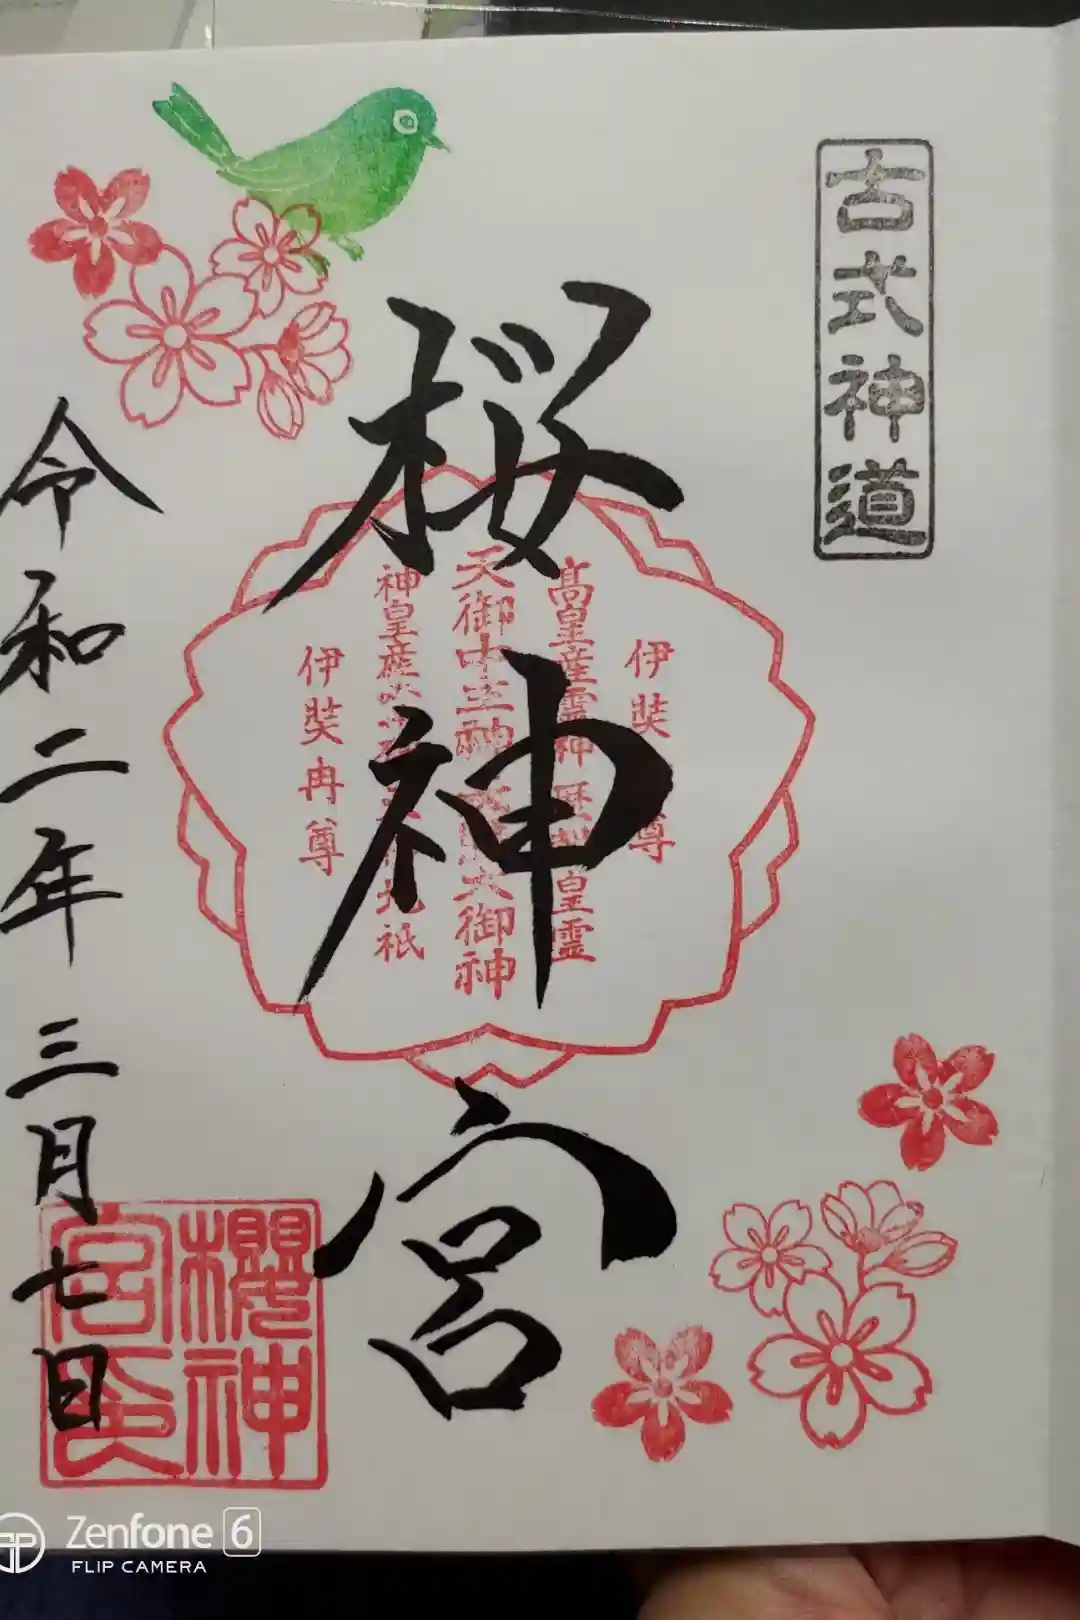 古式神道
桜神宮
伊弉
尊
高皇産霊神
皇霊
天御中主神
大御神
神皇産
地祇
伊弉冉尊
令和二年三月七日
櫻神宮印
Zenfone 6
FLIP CAMERA